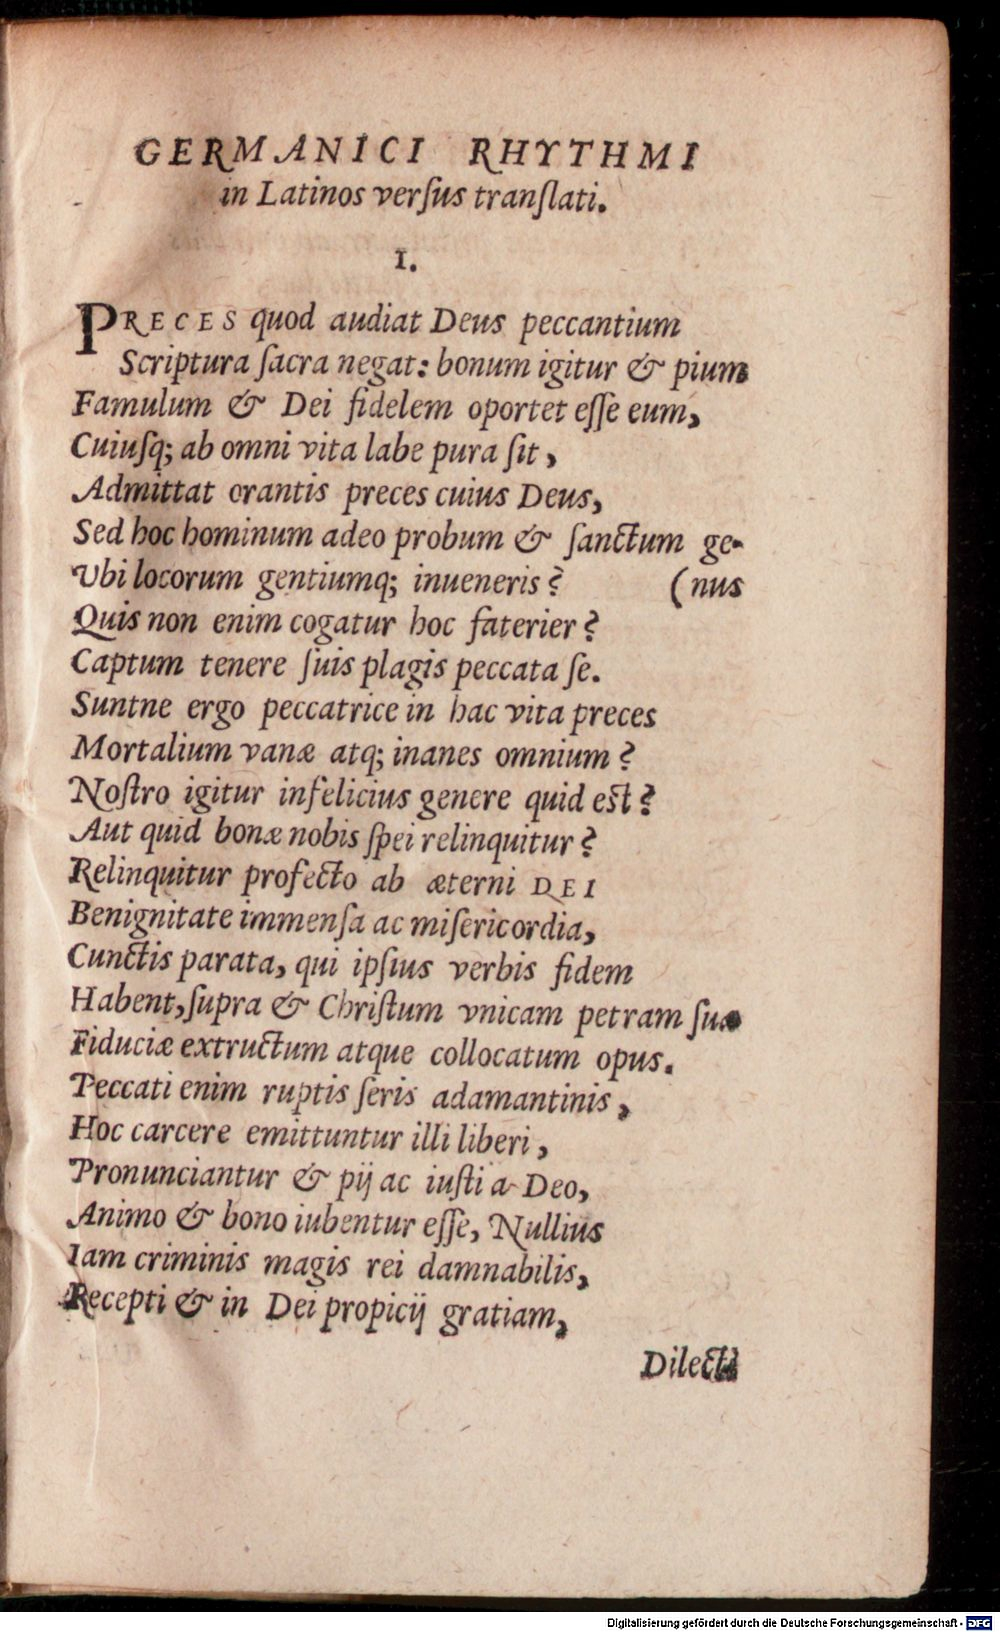 GERMANICI RHYTHMI
in Latinos verſus tranſlati.
I.
PRECES quod audiat Deus peccantium
Scriptura ſacra negat: bonum igitur & pium
Famulum & Dei fidelem oportet eſſe eum,
Cuiuſq; ab omni vita labe pura ſit,
Admittat orantis preces cuius Deus,
Sed hoc hominum adeo probum & ſanctum ge-
Vbi locorum gentiumq; inueneris? (nus
Quis non enim cogatur hoc faterier?
Captum tenere ſuis plagis peccata ſe.
Suntne ergo peccatrice in hac vita preces
Mortalium vanæ atq; inanes omnium?
Noſtro igitur infelicius genere quid est?
Aut quid bonæ nobis ſpei relinquitur?
Relinquitur profecto ab æterni DEI
Benignitate immenſa ac miſericordia,
Cunctis parata, qui ipſius verbis fidem
Habent, ſupra & Chriſtum vnicam petram ſuæ
Fiduciæ extructum atque collocatum opus.
Peccati enim ruptis ſeris adamantinis,
Hoc carcere emittuntur illi liberi,
Pronunciantur & pij ac iuſti a Deo,
Animo & bono iubentur eſſe, Nullius
Iam criminis magis rei damnabilis,
Recepti & in Dei propicij gratiam,
Dilecti
Digitalisierung gefördert durch die Deutsche Forschungsgemeinschaft - DFG